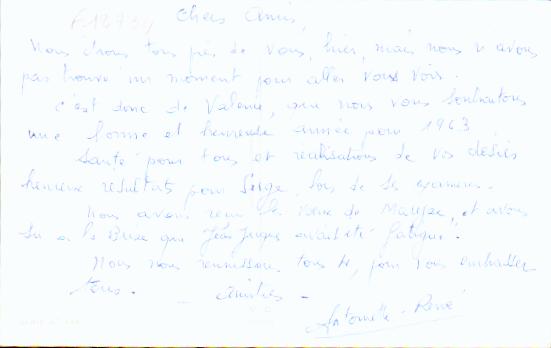 Chers Amis,
Nous étions tous près de vous, hier, mais nous n'avons
pas trouvé un moment pour aller vous voir.
C'est donc de Valence, que nous vous souhaitons
une bonne et heureuse année pour 1963
Santé pour tous et réalisations de vos désirs
heureux résultats pour Serge, lors de ses examens.
Nous avons reçu la de et avons
su que Jean Jacques avait été fatigué.
Nous nous réunissons tous 4, pour vous embrasser
tous. _ Amitiés -
Antoinette - René